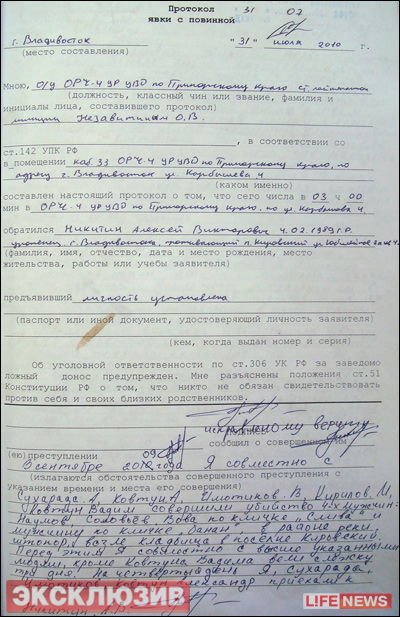 Протокол 31 07
явки с повинной
г. Владивосток "31" июля 2010 г.
(место составления)
Мною, о/у ОРЧ-4 УР УВД по Приморскому краю ст. лейтенант
(должность, классный чин или звание, фамилия и
инициалы лица, составившего протокол)
милиции О.В.
, в соответствии со
ст.142 УПК РФ
в помещении каб. 33 ОРЧ-4 УР УВД по Приморскому краю, по
адресу г. Владивосток ул. 4
(каком именно)
составлен настоящий протокол о том, что сего числа в 03 ч 00
мин в ОРЧ-4 УР УВД по Приморскому краю по ул. 4
обратился Никитин Алексей Викторович 4.02.1989 г.р.
уроженец г. Владивостока, проживающий п. Кировский ул.
(фамилия, имя, отчество, дата и место рождения, место
жительства, работы или учебы заявителя)
предъявивший личность установлена
(паспорт или иной документ, удостоверяющий личность заявителя)
(кем, когда выдан номер и серия)
Об уголовной ответственности по ст.306 УК РФ за заведомо
ложный донос предупрежден. Мне разъяснены положения ст.51
Конституции РФ о том, что никто не обязан свидетельствовать
против себя и своих близких родственников.
сообщил о совершенном им
(ею)преступлении
В сентябре года Я совместно с
(излагаются обстоятельства совершенного преступления с
указанием времени и места его совершения)
Сухарада А, Ковтун А, Илютиков. В, Кирилов. И,
Ковтун Вадим совершили убийство 4-х мужчин:
Наумов, Соловьев, Вова по кличке „Слива" и
мужчину по кличке „Банан" в районе реки,
возле кладбища в поселке Кировский.
Перед этим Я совместно с выше указанными
людьми, кроме Ковтуна Вадима вели слежку
три дня. На четвертый день Я, Сухарада,
Илютиков Ковтун Александр приехали к
Никитин А.В.
ЭКСКЛЮЗИВ
LIFE NEWS